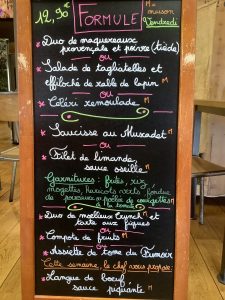 12,50€ FORMULE M maison
Vendredi
* Duo de maquereaux
provençale et poivre (tiède)
ou
* Salade de tagliatelles et
effiloché de rable de lapin M
ou
* Céleri remoulade M
* Saucisse au Muscadet
ou M
* Filet de limande
sauce oseille M
Garnitures: frites, riz,
mogettes, haricots verts, fondue
de poireaux
à la tomate
* Duo de moelleux Crunch M et
tarte aux figues
ou
* Compote de fruits M
ou
* Assiette de tome du Fumoir
Cette semaine, le chef vous propose:
* Langue de boeuf M
sauce piquante